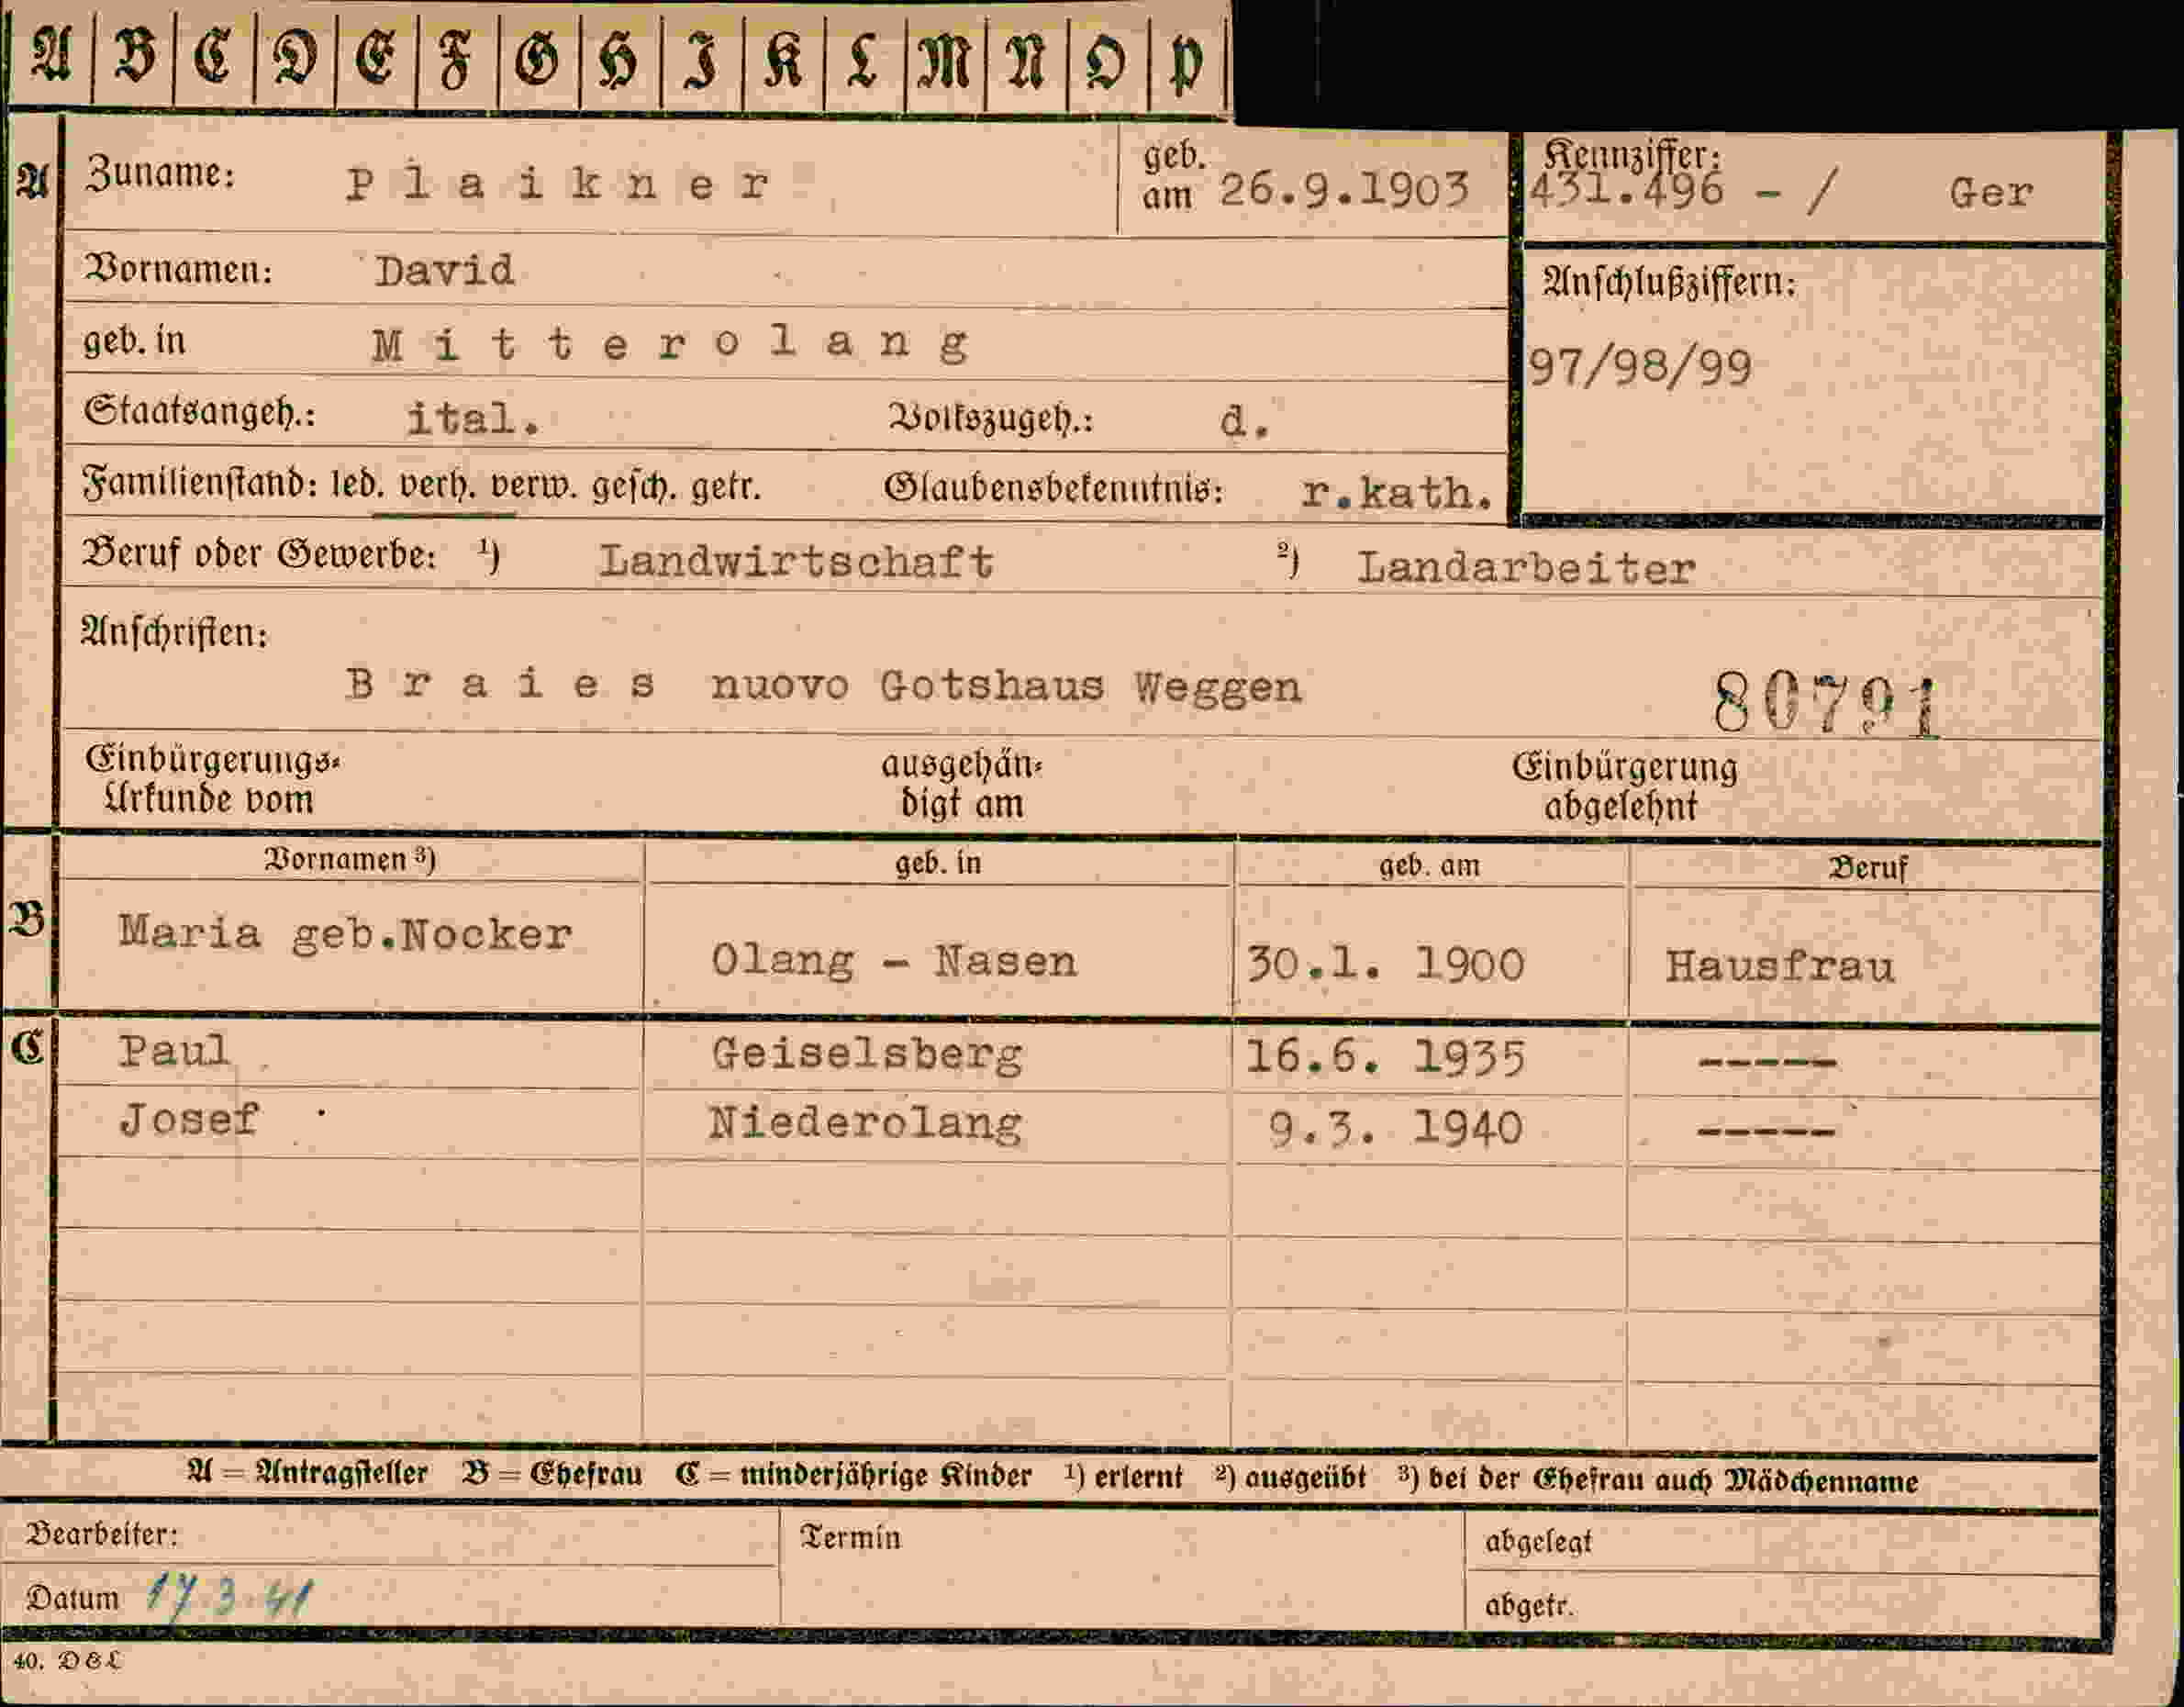 A B C D E F G H I K L M N O P
A Zuname: Plaikner geb. am 26.9.1903 Kennziffer: 431.496 - / Ger
Vornamen: David Anschlußziffern:
geb. in Mitterolang 97/98/99
Staatsangeh.: ital. Volkszugeh.: d.
Familienstand: led. verh. verw. gesch. getr. Glaubensbekenntnis: r.kath.
Beruf oder Gewerbe: ¹) Landwirtschaft ²) Landarbeiter
Anschriften:
Braies nuovo Gotshaus Weggen 80791
Einbürgerungs- ausgehän- Einbürgerung
Urkunde vom digt am abgelehnt
Vornamen ³) geb. in geb. am Beruf
B Maria geb.Nocker Olang - Nasen 30.1. 1900 Hausfrau
C Paul Geiselsberg 16.6. 1935 -----
Josef Niederolang 9.3. 1940 -----
A = Antragsteller B = Ehefrau C = minderjährige Kinder ¹) erlernt ²) ausgeübt ³) bei der Ehefrau auch Mädchenname
Bearbeiter: Termin abgelegt
Datum 17.3.41 abgetr.
40. D&L